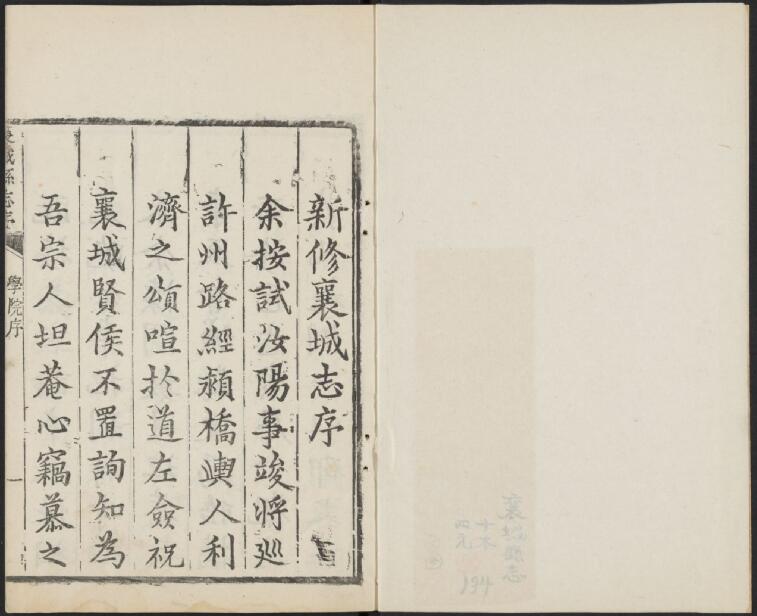 新修襄城志序
余按試汝陽事竣將廵
許州路經潁橋輿人利
濟之頌喧於道左僉祝
襄城賢侯不置詢知為
吾宗人坦菴心竊慕之
城縣志序
學院序
一
襄城縣志
十本
四元
194